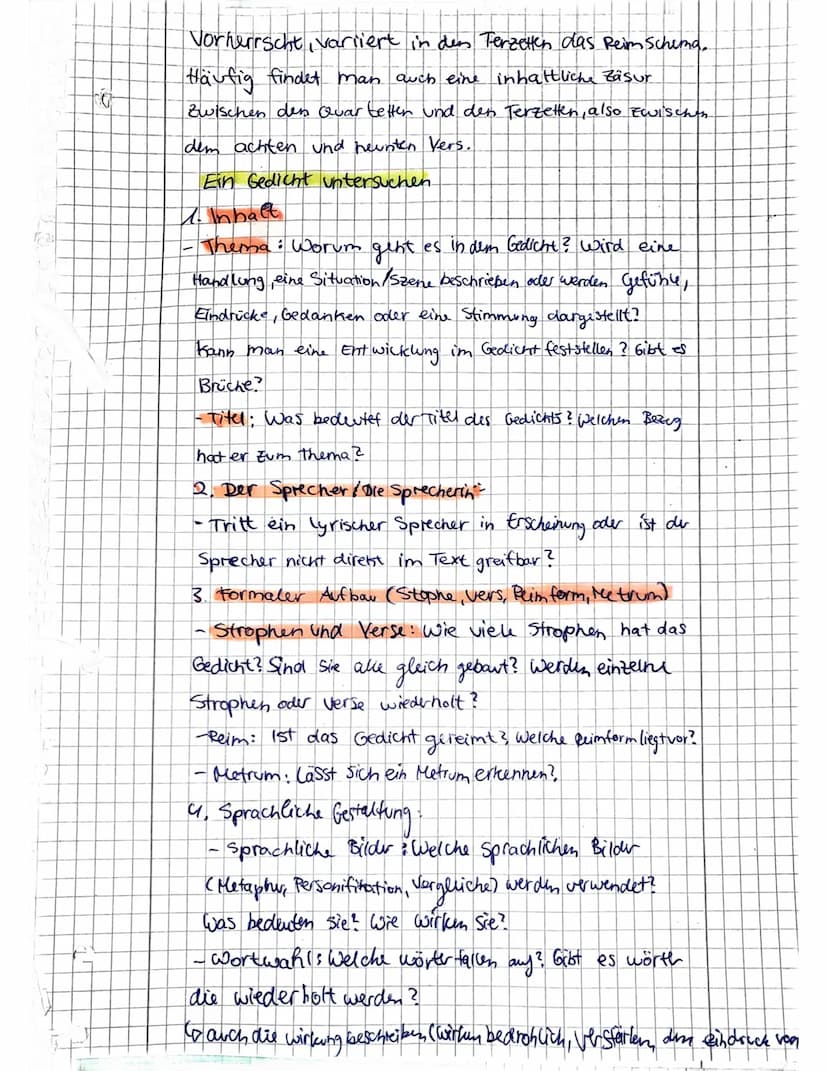 Vorherrscht, variiert in den Terzetten das Reimschema.
Häufig findet man auch eine inhaltliche Zäsur
zwischen den Quartetten und den Terzetten, also zwischen
dem achten und neunten Vers.
Ein Gedicht untersuchen
1. Inhalt
- Thema: Worum geht es in dem Gedicht? Wird eine
Handlung, eine Situation/Szene beschrieben oder werden Gefühle,
Eindrücke, Gedanken oder eine Stimmung dargestellt?
Kann man eine Entwicklung im Gedicht feststellen? Gibt es
Brüche?
- Titel: Was bedeutet der Titel des Gedichts? Welchen Bezug
hat er zum Thema?
2. Der Sprecher/Die Sprecherin:
- Tritt ein lyrischer Sprecher in Erscheinung oder ist der
Sprecher nicht direkt im Text greifbar?
3. Formaler Aufbau (Stophe, Vers, Reimform, Metrum)
- Strophen und Verse: Wie viele Strophen hat das
Gedicht? Sind sie alle gleich gebaut? Werden einzelne
Strophen oder Verse wiederholt?
- Reim: Ist das Gedicht gereimt?, Welche Reimform liegt vor?
- Metrum: Lässt sich ein Metrum erkennen?
4. Sprachliche Gestaltung:
- Sprachliche Bilder: Welche sprachlichen Bilder
(Metapher, Personifikation, Vergleiche) werden verwendet?
Was bedeuten sie? Wie wirken sie?
- Wortwahl: Welche Wörter fallen auf? Gibt es Wörter
die wiederholt werden?
↳ auch die Wirkung beschreiben (wirken bedrohlich, verstärken den Eindruck von